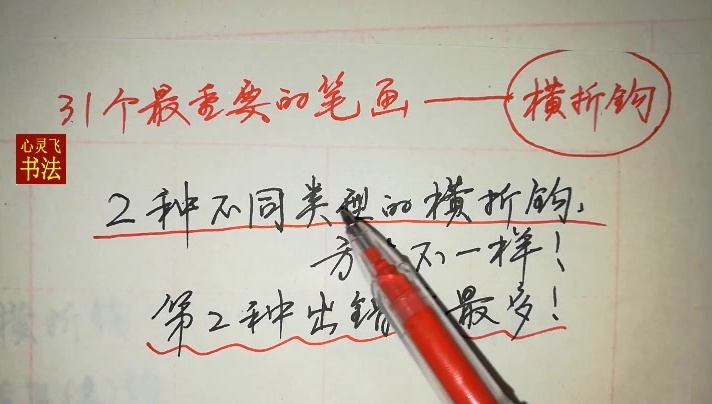 31个最重要的笔画——横折钩
心灵飞
书法
2种不同类型的横折钩,
方 不一样!
第2种出错 最多!